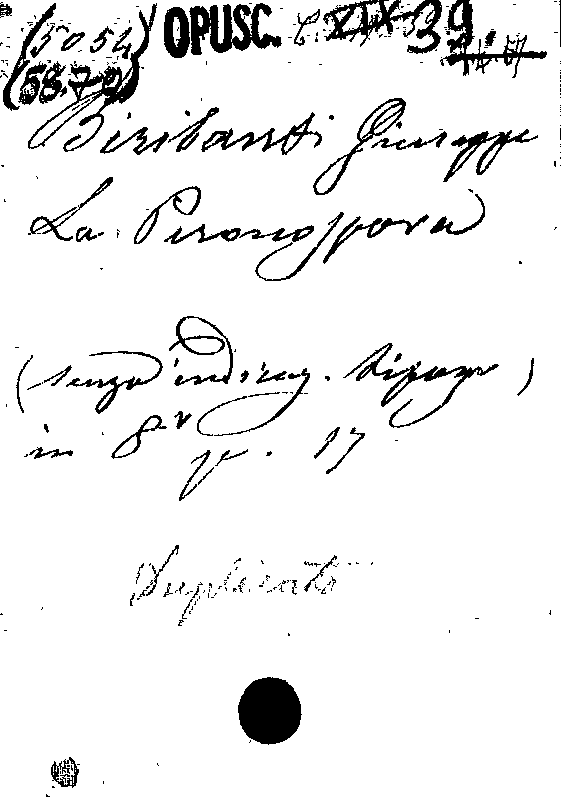 (5054) OPUSC. 39.
(58.72)
Biribanti Giuseppe
La Peronospora
(senza indicaz. tipogr)
in 8° p. 17
Duplicato